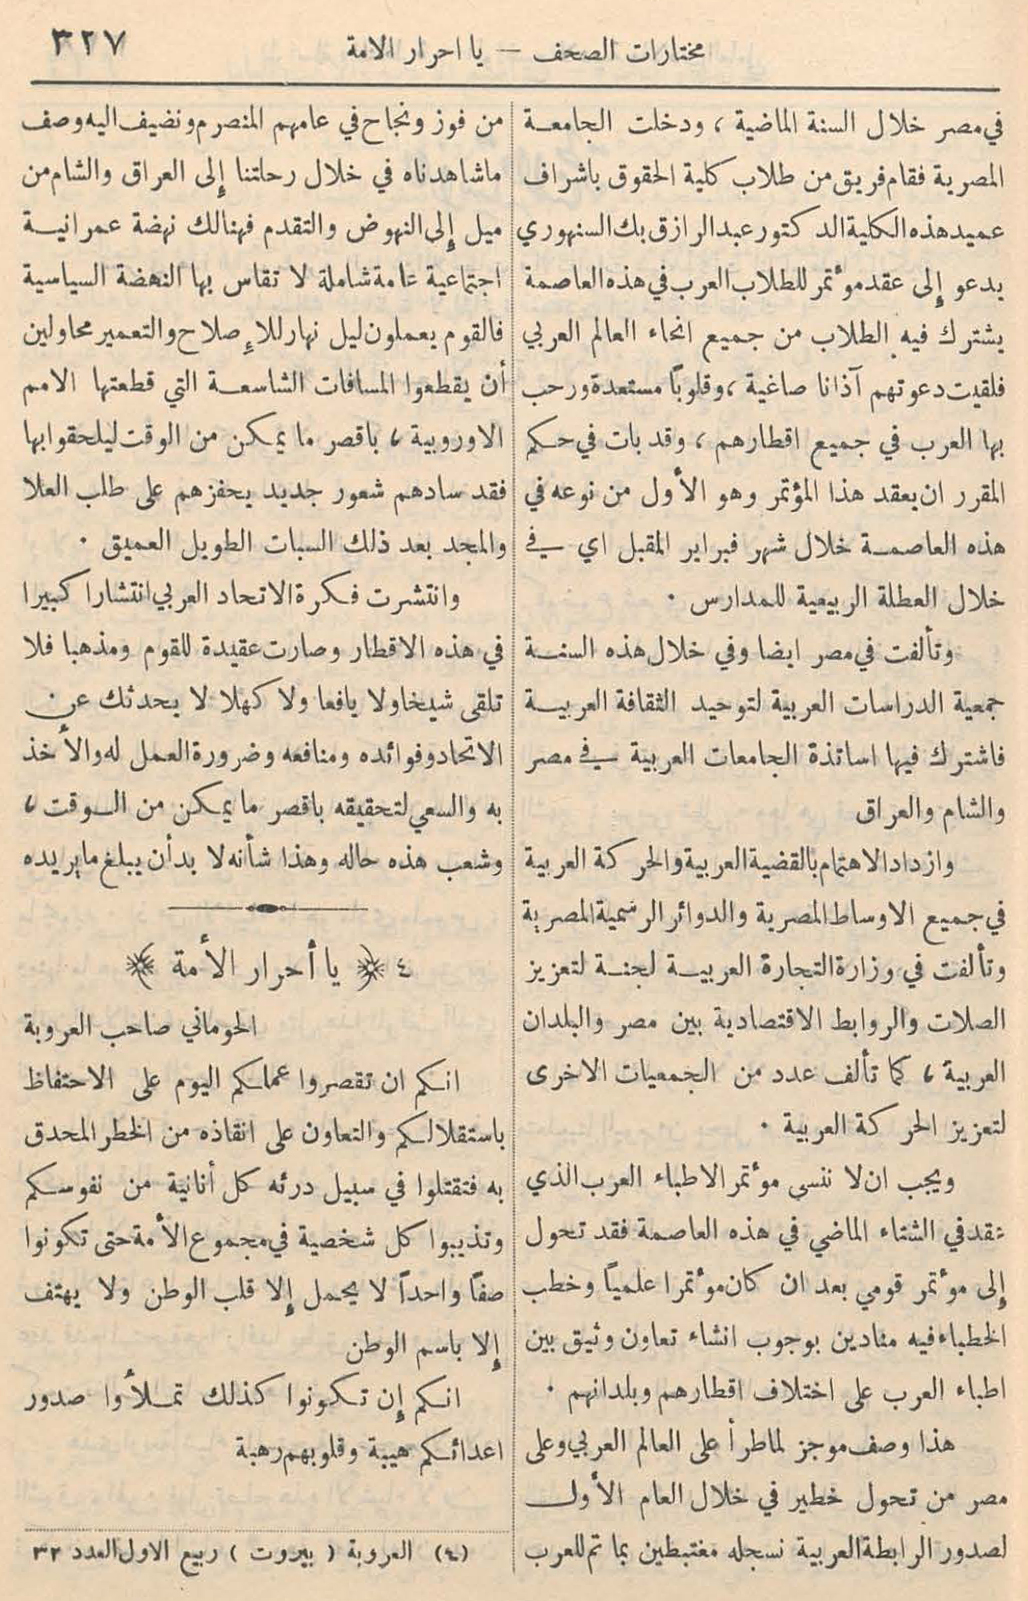 مختارات الصحف — يا احرار الامة
٣٢٧
في مصر خلال السنة الماضية ، ودخلت الجامعة
المصرية فقام فريق من طلاب كلية الحقوق باشراف
عميد هذه الكلية الدكتور عبد الرازق بك السنهوري
يدعو إلى عقد مؤتمر للطلاب العرب في هذه العاصمة
يشترك فيه الطلاب من جميع انحاء العالم العربي
فلقيت دعوتهم آذانا صاغية ، وقلوباً مستعدة ورحب
بها العرب في جميع اقطارهم ، وقد بات في حكم
المقرر ان يعقد هذا المؤتمر وهو الأول من نوعه في
هذه العاصمة خلال شهر فبراير المقبل اي في
خلال العطلة الربيعية للمدارس .
وتألفت في مصر ايضا وفي خلال هذه السنة
جمعية الدراسات العربية لتوحيد الثقافة العربية
فاشترك فيها اساتذة الجامعات العربية في مصر
والشام والعراق
وازداد الاهتمام بالقضية العربية والحركة العربية
في جميع الاوساط المصرية والدوائر الرسمية المصرية
وتألفت في وزارة التجارة العربية لجنة لتعزيز
الصلات والروابط الاقتصادية بين مصر والبلدان
العربية ، كما تألف عدد من الجمعيات الاخرى
لتعزيز الحركة العربية .
ويجب ان لا ننسى مؤتمر الاطباء العرب الذي
عقد في الشتاء الماضي في هذه العاصمة فقد تحول
إلى مؤتمر قومي بعد ان كان مؤتمرا علمياً وخطب
الخطباء فيه منادين بوجوب انشاء تعاون وثيق بين
اطباء العرب على اختلاف اقطارهم وبلدانهم .
هذا وصف موجز لما طرأ على العالم العربي وعلى
مصر من تحول خطير في خلال العام الأول
لصدور الرابطة العربية نسجله مغتبطين بما تم للعرب
من فوز ونجاح في عامهم المنصرم ونضيف اليه وصف
ما شاهدناه في خلال رحلتنا إلى العراق والشام من
ميل إلى النهوض والتقدم فهنالك نهضة عمرانية
اجتماعية عامة شاملة لا تقاس بها النهضة السياسية
فالقوم يعملون ليل نهار للإصلاح والتعمير محاولين
أن يقطعوا المسافات الشاسعة التي قطعتها الامم
الاوروبية ، باقصر ما يمكن من الوقت ليلحقوا بها
فقد سادهم شعور جديد يحفزهم على طلب العلا
والمجد بعد ذلك السبات الطويل العميق .
وانتشرت فكرة الاتحاد العربي انتشارا كبيرا
في هذه الاقطار وصارت عقيدة للقوم ومذهبا فلا
تلقى شيخا ولا يافعا ولا كهلا لا يحدثك عن
الاتحاد وفوائده ومنافعه وضرورة العمل له والأخذ
به والسعي لتحقيقه باقصر ما يمكن من الوقت ،
وشعب هذه حاله وهذا شأنه لا بد أن يبلغ ما يريده
٤ ﴿ يا أحرار الأمة ﴾
الحوماني صاحب العروبة
انكم ان تقصروا عملكم اليوم على الاحتفاظ
باستقلالكم والتعاون على انقاذه من الخطر المحدق
به فتقتلوا في سبيل درئه كل أنانية من نفوسكم
وتذيبوا كل شخصية في مجموع الأمة حتى تكونوا
صفاً واحداً لا يحمل إلا قلب الوطن ولا يهتف
إلا باسم الوطن
انكم إن تكونوا كذلك تملأوا صدور
اعدائكم هيبة وقلوبهم رهبة
(٤) العروبة ( بيروت ) ربيع الاول العدد ٣٢